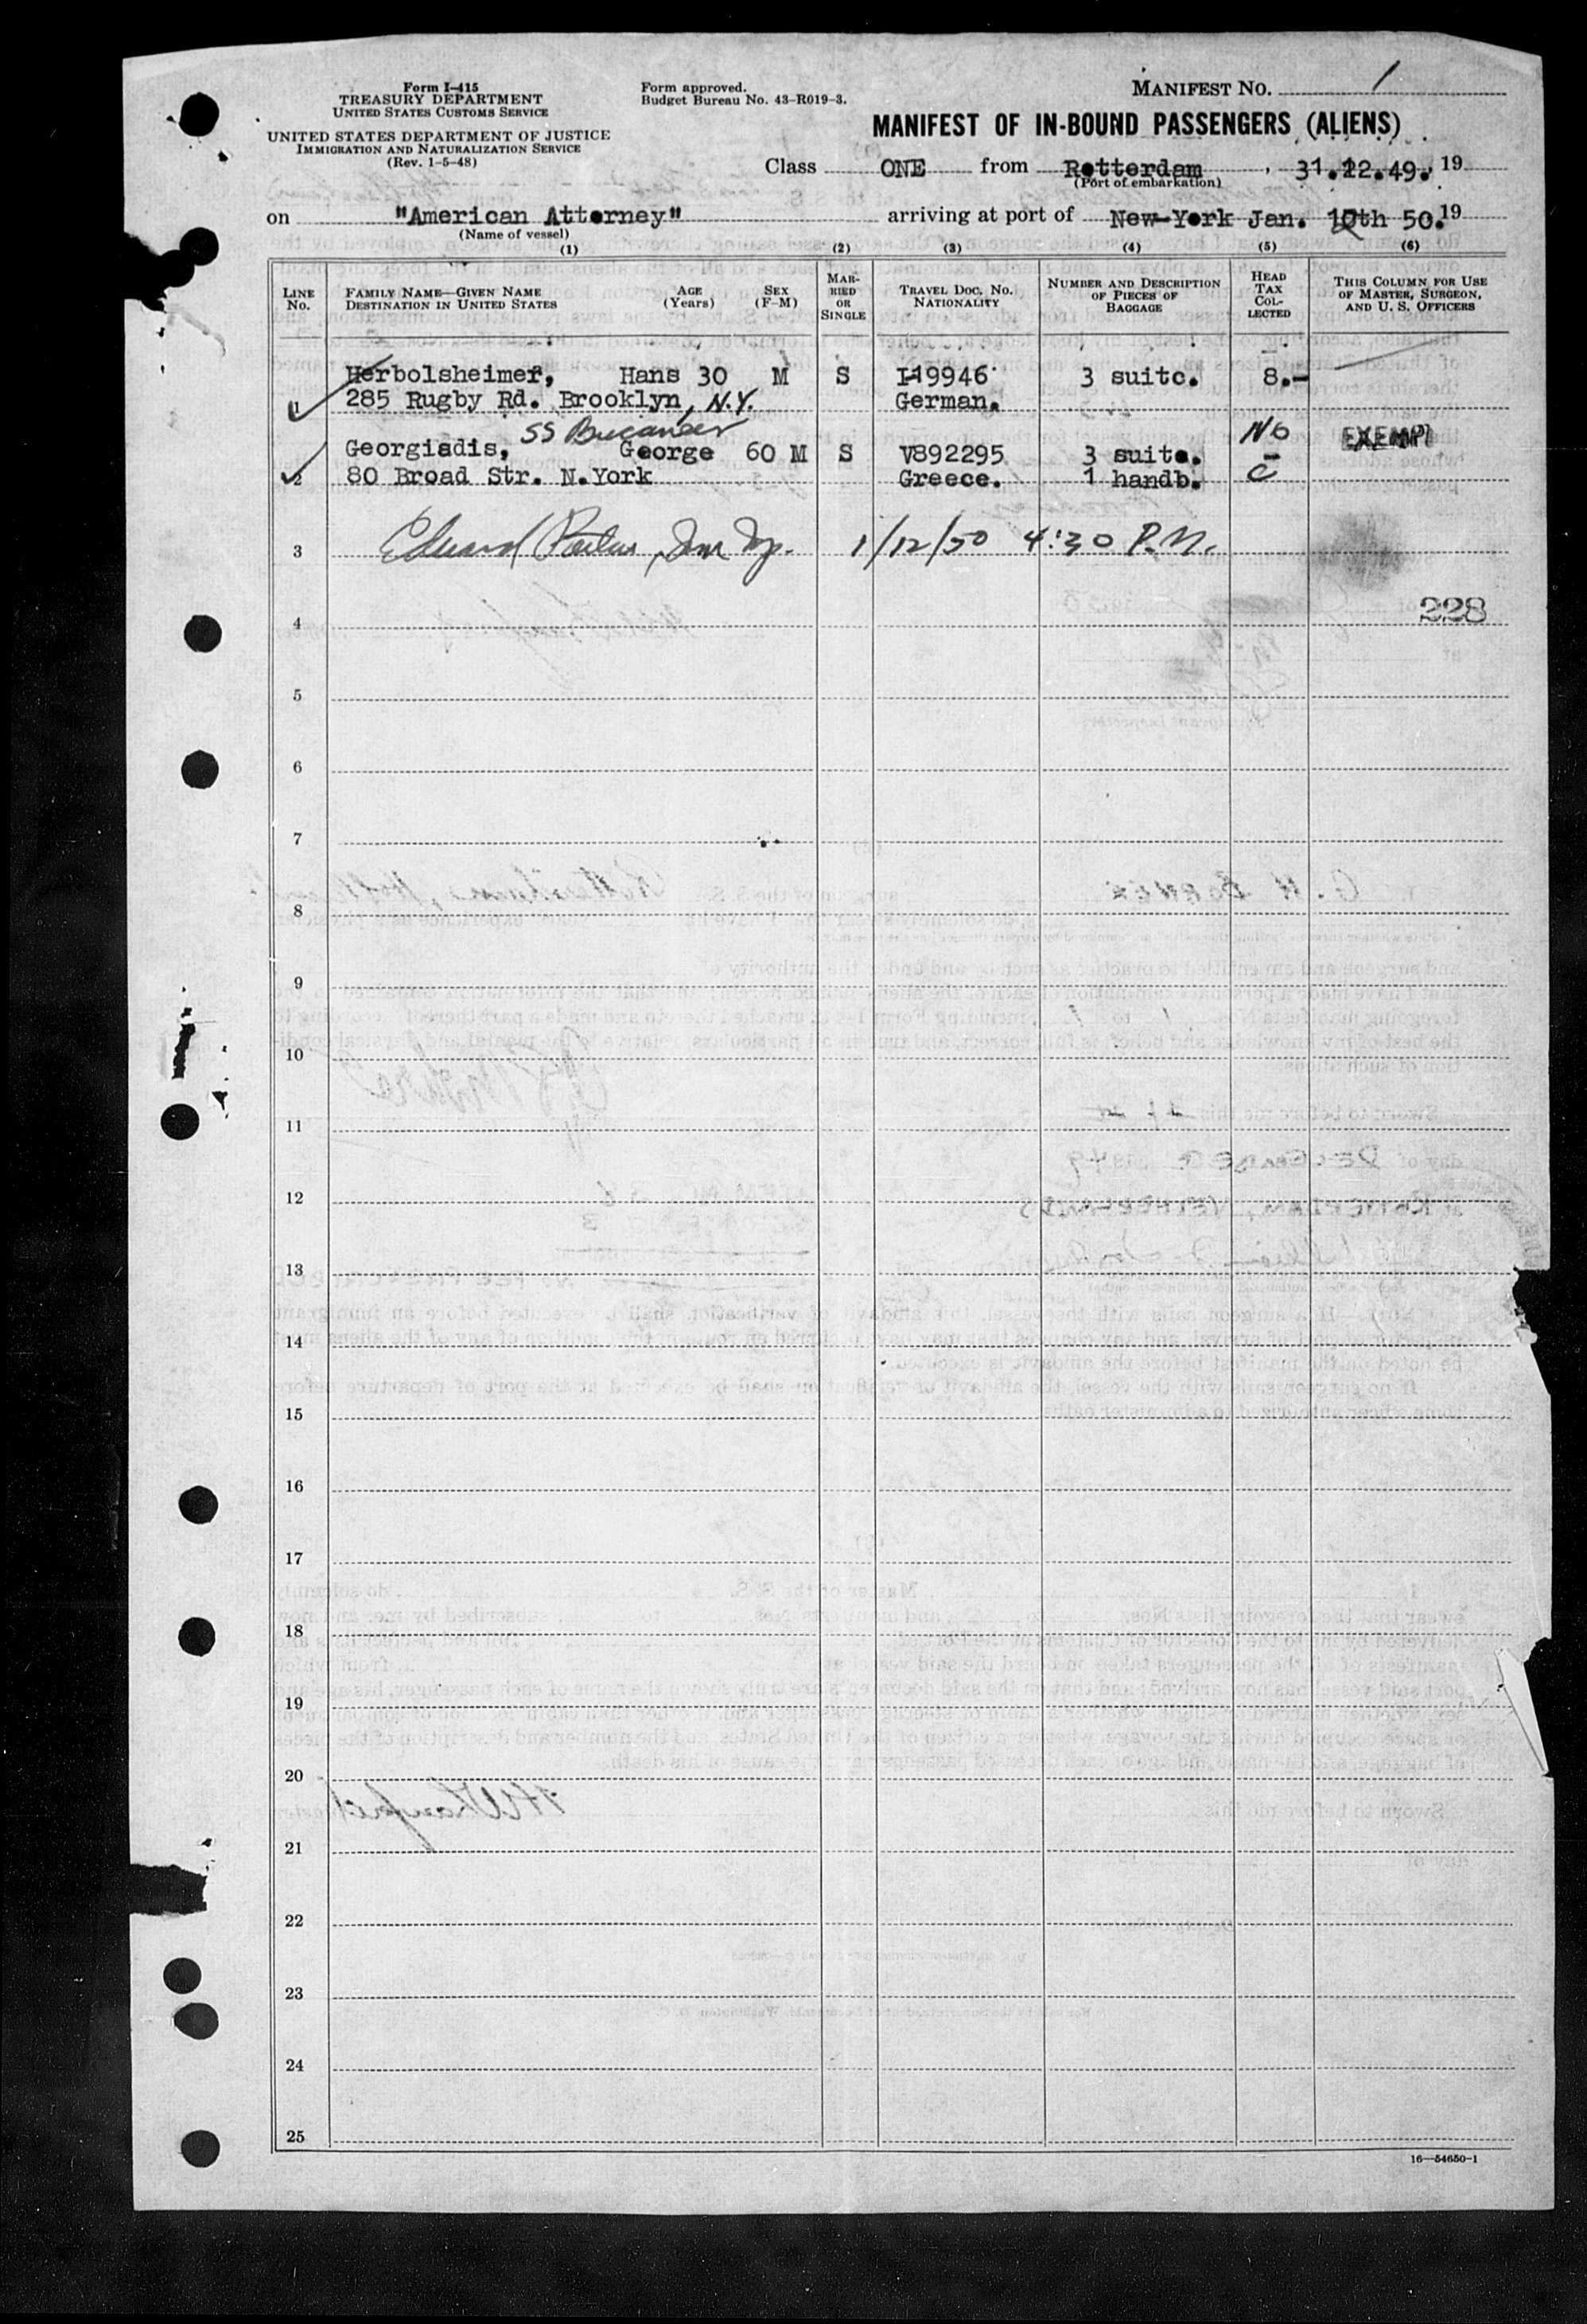 Form I-415
TREASURY DEPARTMENT
UNITED STATES CUSTOMS SERVICE
UNITED STATES DEPARTMENT OF JUSTICE
IMMIGRATION AND NATURALIZATION SERVICE
(Rev. 1-5-48)
Form approved.
Budget Bureau No. 43-R019-3.
MANIFEST NO. 1
MANIFEST OF IN-BOUND PASSENGERS (ALIENS)
Class ONE from Rotterdam, 31.12.49. 19
(Port of embarkation)
on "American Attorney" arriving at port of New-York Jan. th 50. 19
(Name of vessel)
(1) (2) (3) (4) (5) (6)
LINE No. FAMILY NAME—GIVEN NAME DESTINATION IN UNITED STATES AGE (Years) SEX (F-M) MARRIED OR SINGLE TRAVEL DOC. NO. NATIONALITY NUMBER AND DESCRIPTION OF PIECES OF BAGGAGE HEAD TAX COLLECTED THIS COLUMN FOR USE OF MASTER, SURGEON, AND U. S. OFFICERS
Herbolsheimer, Hans 30 M S I-19946 3 suitc. 8.-
1 285 Rugby Rd. Brooklyn, N.Y. German.
SS Bucaneer No
Georgiadis, George 60 M S V892295 3 suitc. EXEMPT
2 80 Broad Str. N.York Greece. 1 handb. C
3 Edward 1/12/50 4:30 P.M.
4 228
5
6
7
8
9
10
11
12
13
14
15
16
17
18
19
20
21
22
23
24
25
16—54650-1